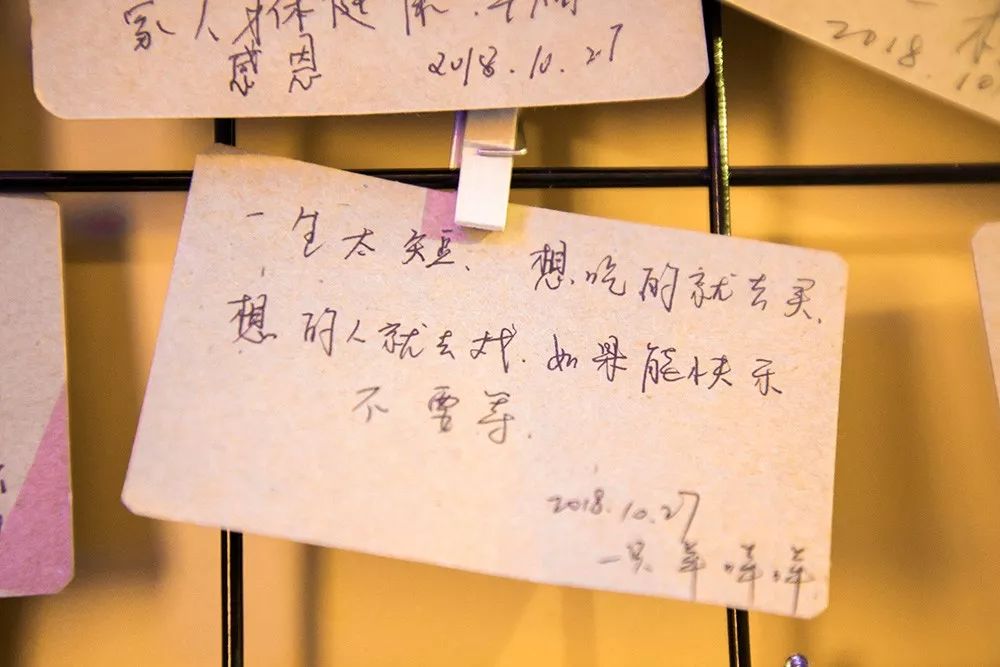 家人身体健康.
感恩 2018.10.27
2018.
10.
一生太短、想吃的就去买.
想的人就去找.如果能快乐
不需等.
2018.10.27
一只